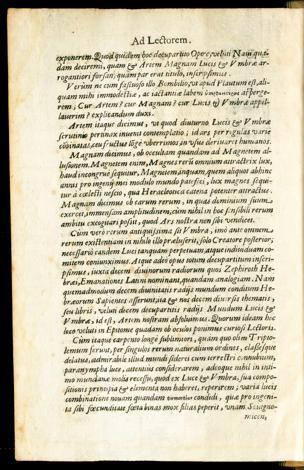 Ad Lectorem.
exponerem. Quod quidem hoc decupartito Opere, veluti
dam decremi, quam & Artem Magnam Lucis & Vmbræ ar-
rogantiori forsan, quam par erat titulo, inscripsimus.
Verùm ne cum fastuoso illo Bombilio, vt apud Plautum est, ali-
quam mihi immodestiæ, ac iactantiæ labem asperge-
rem; Cur Artem? cur Magnam? cur Lucis & Vmbræ appel-
lauerim? explicandum duxi.
Artem itaque dicimus, vt quod diuturno Lucis & Vmbræ
scrutinio penitiore inuenit contemplatio; id ars per regulas variè
cōbinatas, ceu fructus illos vberrimos in vsus deriuaret humanos.
Magnam dicimus, ob occultam quandam ad Magnetem al-
lusionem. Magnetem enim, Magnes rerū omnium attractrix lux,
haud incongruè sequitur, Magnetemq́ue, quem aliquot abhinc
annis pro ingenij mei modulo mundo patefeci, lux magna sequi-
tur à cælesti nexu, qua Heracleotica catena potenter attractus.
Magnam dicimus ob rerum, in quas dominium suum
exercet, immensam amplitudinem; cùm nihil in hoc sensibili rerum
ambitu excogitari possit, quod Ars nostra non sibi vendicet.
Cùm verò rerum antiquissima sit Vmbra, imò ante omnem
rerum existentiam in nihilo illo præluserit, solo Creatore posterior;
necessariò eandem Luci tanquam perpetuam, atque indiuiduam co-
mitem coniunximus. Atque adeò opus totum decupartitum inscri-
psimus, iuxta decem diuinorum radiorum quos Zephiroth He-
bræi, Emanationes Latini nominant, quandam analogiam. Nam
quemadmodum decem diuinitatis radijs mundum conditum He-
bræorum Sapientes asserunt, ita & nos decem diuersis thematis,
seu libris, veluti decem departitis radijs Mundum Lucis &
Vmbræ, id est, Artem nostram absoluimus. Quorum ideam hoc
loco veluti in Epitome quadam ob oculos ponimus curiosi Lectoris.
Cùm itaque carpento longè sublimiori, quàm quo olim Tripto-
lemum ferunt, per singulos rerum naturalium ordines, classesque
delatus, admirabile illud mundi siderei cum terrestri connubium,
paranympha luce, attentiùs considerarem, adeoque nihil in inti-
mo mundanæ molis recessu, quod ex Luce & Vmbra, sua compo-
sitionis principia & elementa non haberet, reperirem; varia lucis
combinatione nouam quandam condidi, quæ pro ingeni-
ta sibi fœcunditate fœta binas mox filias peperit, vnam
micen,